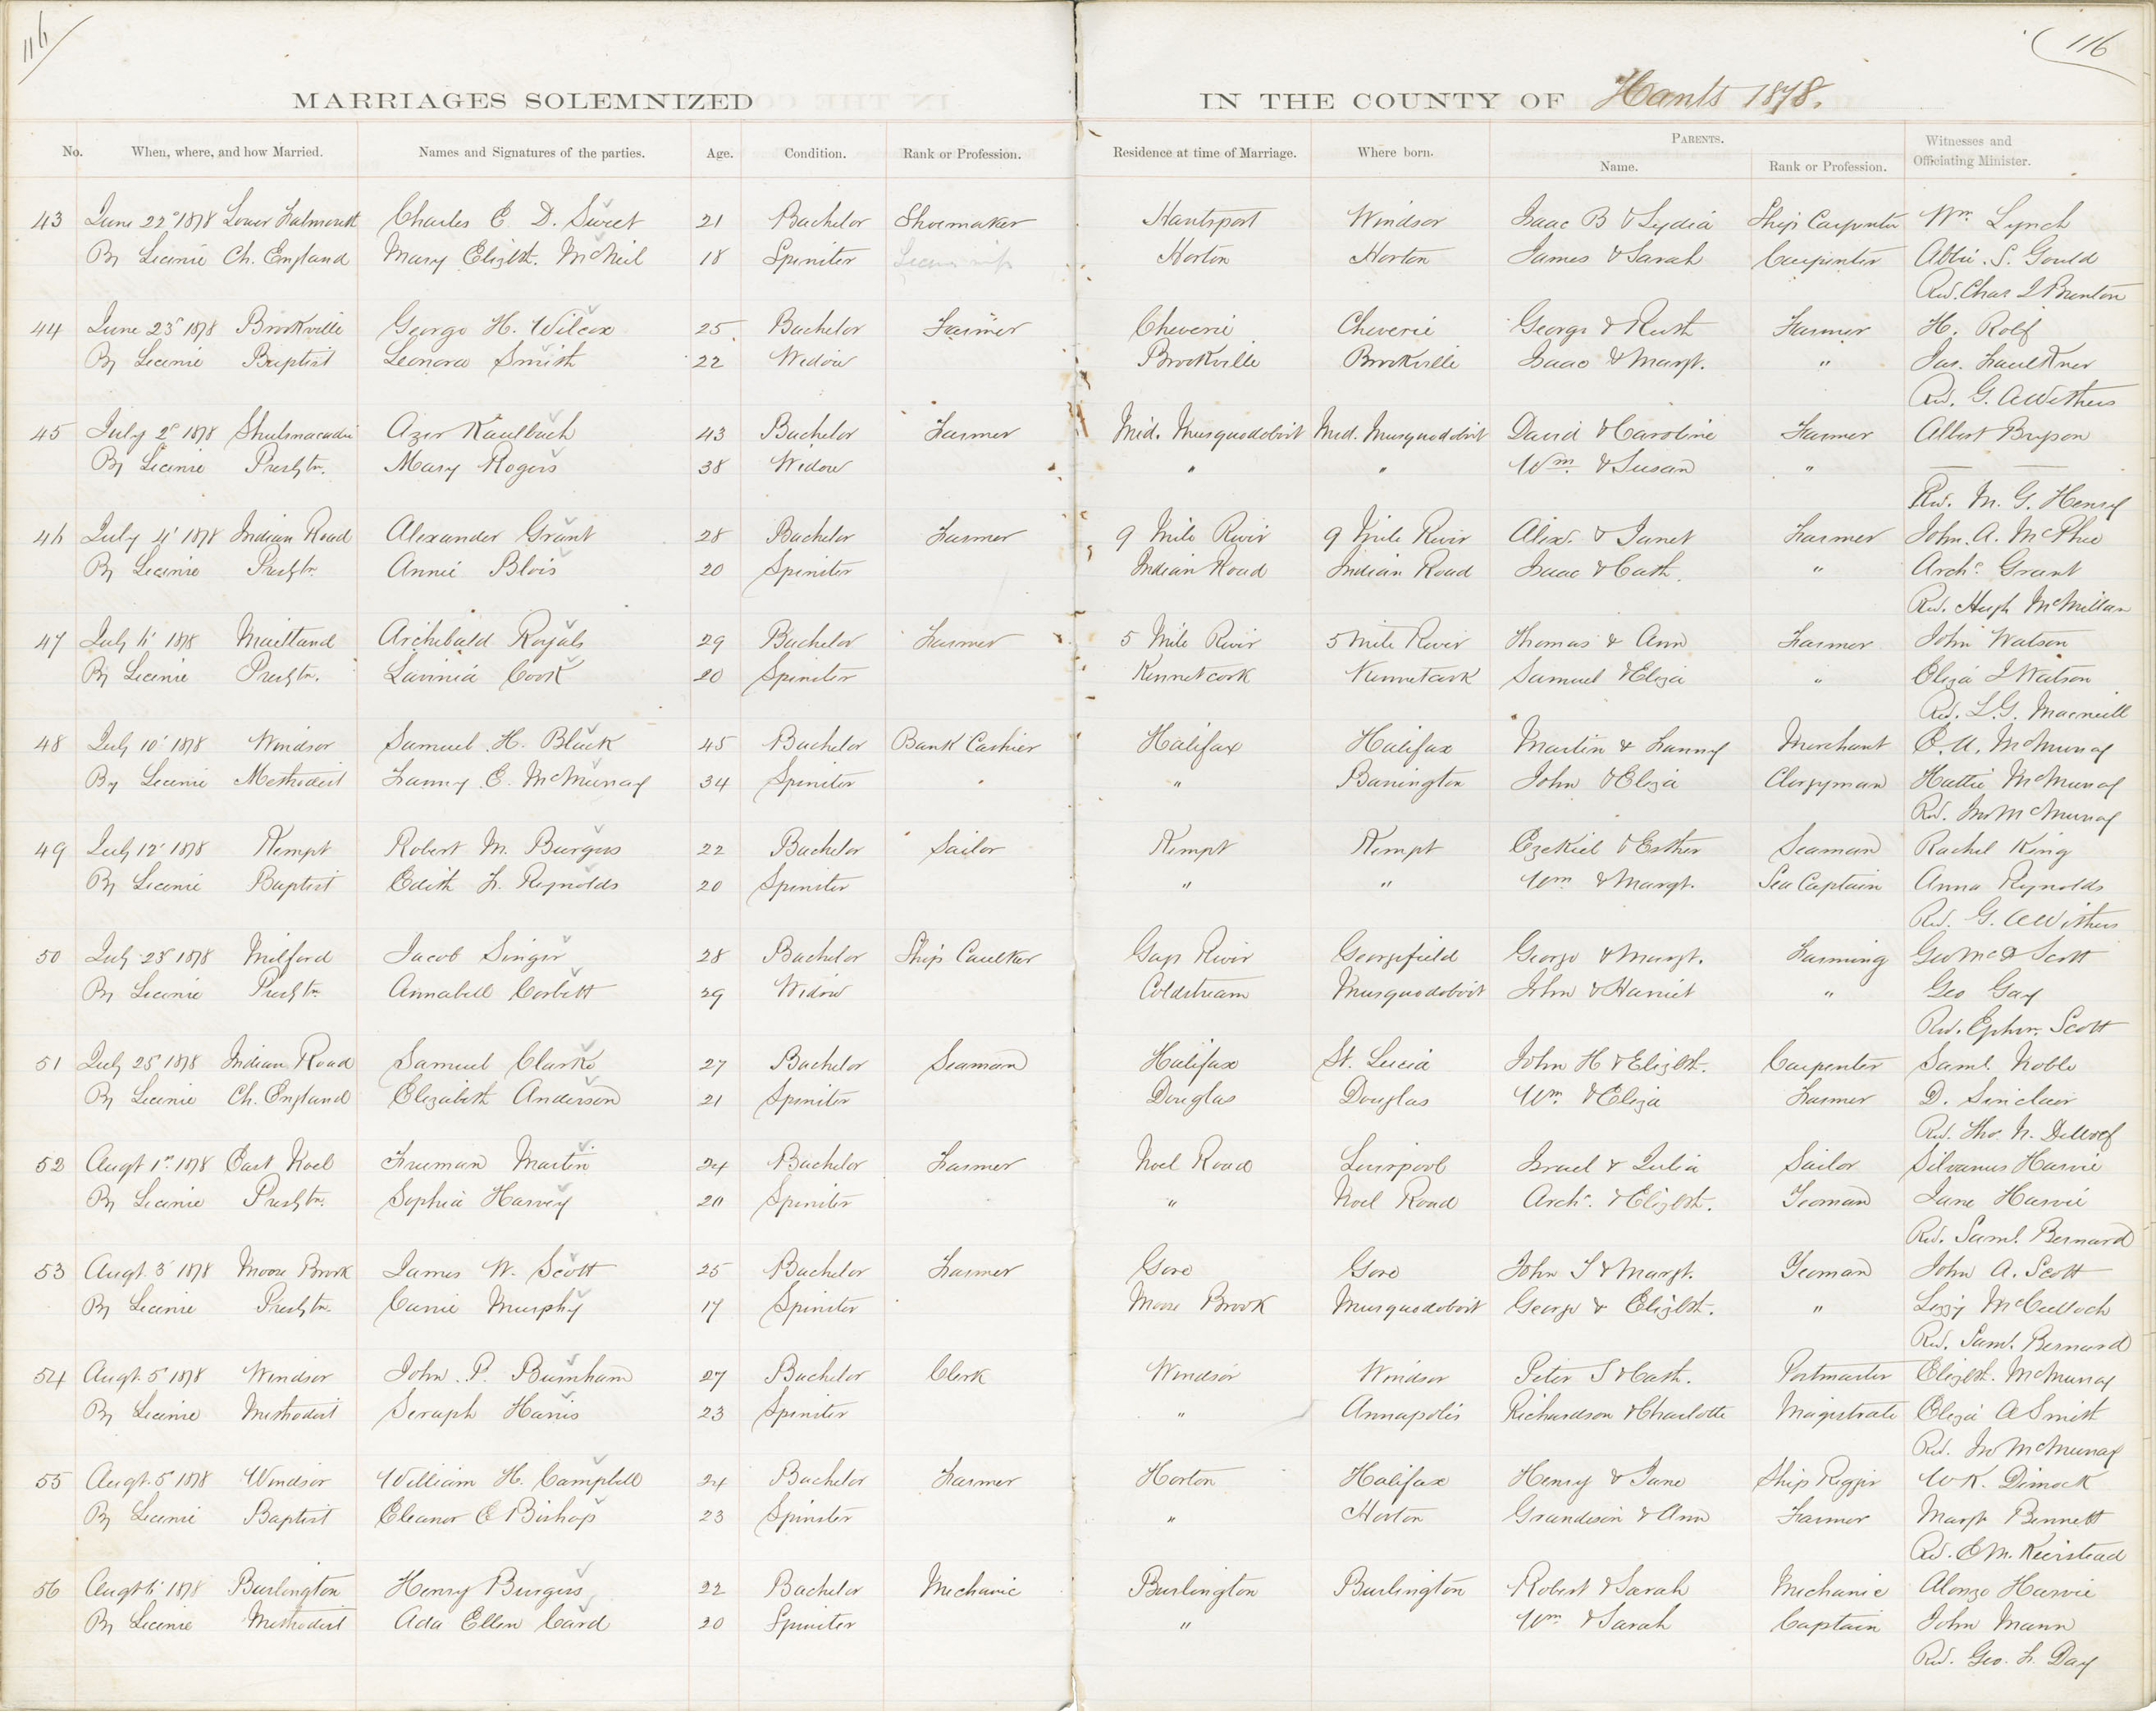 116
116
MARRIAGES SOLEMNIZED IN THE COUNTY OF Hants 1878.
No. When, where, and how Married. Names and Signatures of the parties. Age. Condition. Rank or Profession. Residence at time of Marriage. Where born. PARENTS. Name. Rank or Profession. Witnesses and Officiating Minister.
43 June 22d 1878 Lower Falmouth Charles E. D. Sweet 21 Bachelor Shoemaker Hantsport Windsor Isaac B & Lydia Ship Carpenter Wm. Lynch
By Licence Ch. England Mary Elizbth. McNeil 18 Spinster Horton Horton James & Sarah Carpenter Abbie. S. Gould
Rev. Chas Brenton
44 June 23d 1878 Brookville George H. Wilcox 25 Bachelor Farmer Cheverie Cheverie George & Ruth Farmer H. Rolf
By Licence Baptist Leonora Smith 22 Widow Brookville Brookville Isaac & Margt. " Jas. Faulkner
Rev. G. A Withers
45 July 2d 1878 Shubenacadie Kaulback 43 Bachelor Farmer Mid. Musquodoboit Mid. Musquodoboit David & Caroline Farmer Albert Bryson
By Licence Presbtn. Mary Rogers 38 Widow " " Wm. & Susan "
Rev. M. G. Henry
46 July 4 1878 Indian Road Alexander Grant 28 Bachelor Farmer 9 Mile River 9 Mile River Alexr. & Janet Farmer John. A. McPhee
By Licence Presbtn. Annie Blois 20 Spinster Indian Road Indian Road Isaac & Cath. " Archd. Grant
Rev. Hugh McMillan
47 July 6 1878 Maitland Archibald Royals 29 Bachelor Farmer 5 Mile River 5 Mile River Thomas & Ann Farmer John Watson
By Licence Presbtn. Lavinia Cook 20 Spinster Kennetcook Kennetcook Samuel & Eliza " Eliza J Watson
Rev. L.G. Macneill
48 July 10 1878 Windsor Samuel H. Black 45 Bachelor Bank Cashier Halifax Halifax Martin & Fanny Merchant McMurray
By Licence Methodist Fanny E. McMurray 34 Spinster " Barrington John & Eliza Clergyman Hattie McMurray
Rev. Jno McMurray
49 July 12 1878 Kempt Robert M. Burgess 22 Bachelor Sailor Kempt Kempt Ezekiel & Esther Seaman Rachel King
By Licence Baptist Edith F. Reynolds 20 Spinster " " Wm & Margt. Sea Captain Anna Reynolds
Rev. G. A Withers
50 July 23 1878 Milford Jacob Singer 28 Bachelor Ship Caulker Gays River Georgefield George & Margt. Farming Geo McD Scott
By Licence Presbtn. Annabell Corbett 29 Widow Coldstream Musquodoboit John & Harriet " Geo Gay
Rev. Ephm. Scott
51 July 25 1878 Indian Road Samuel Clarke 27 Bachelor Seaman Halifax St. Lucia John H & Elizbth. Carpenter Saml. Noble
By Licence Ch. England Elizabeth Anderson 21 Spinster Douglas Douglas Wm. & Eliza Farmer D. Sinclair
Rev. Thos. N. DeWolf
52 Augt 1st 1878 East Noel Freeman Martin 24 Bachelor Farmer Noel Road Liverpool Israel & Julia Sailor Silvanus Harvie
By Licence Presbtn. Sophia Harvey 20 Spinster " Noel Road Archd. & Elizbth. Yeoman Jane Harvie
Rev. Saml. Bernard
53 Augt. 3 1878 Moose Brook James W. Scott 25 Bachelor Farmer Gore Gore John S & Margt. Yeoman John A. Scott
By Licence Presbtn. Carrie Murphy 17 Spinster Moose Brook Musquodoboit George & Elizbth. " Lizzy McCulloch
Rev. Saml. Bernard
54 Augt. 5 1878 Windsor John. P. Burnham 27 Bachelor Clerk Windsor Windsor Peter S & Cath. Postmaster Elizbth. McMurray
By Licence Methodist Seraph Harris 23 Spinster " Annapolis Richardson & Charlotte Magistrate Eliza A Smith
Rev. Jno McMurray
55 Augt. 5 1878 Windsor William H. Campbell 24 Bachelor Farmer Horton Halifax Henry & Jane Ship Rigger W K. Dimock
By Licence Baptist Eleanor E Bishop 23 Spinster " Horton Grandison & Ann Farmer Margt Bennett
Rev. E M. Keirstead
56 Augt 6 1878 Burlington Henry Burgess 22 Bachelor Mechanic Burlington Burlington Robert & Sarah Mechanic Alonzo Harvie
By Licence Methodist Ada Ellen Card 20 Spinster " Wm & Sarah Captain John Mann
Rev. Geo. F. Day